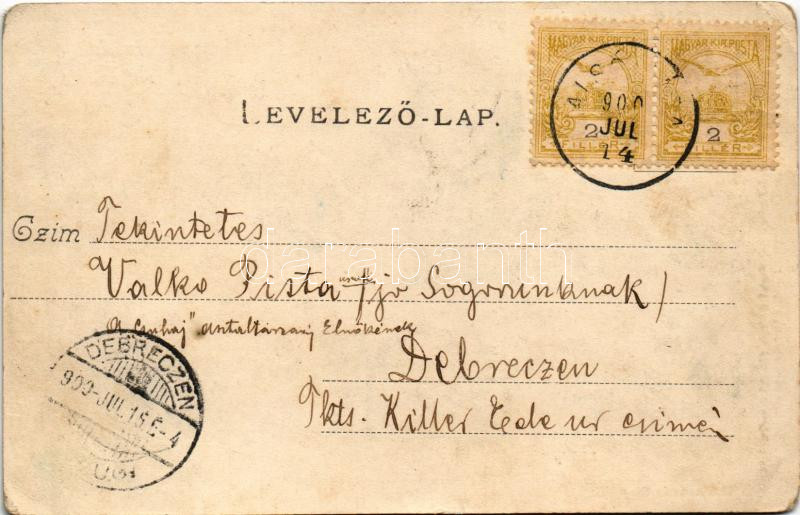 MAGYAR KIR. POSTA MAGYAR KIR. POSTA
2 2
FILLÉR FILLÉR
900
JUL
14
LEVELEZŐ-LAP.
Czim Tekintetes
Valko Pista (jó Sogorunknak)
A "Csuhaj" asztaltársaság Elnökének
Debreczen
Tkts. Killer Ede ur
DEBRECZEN
darabanth